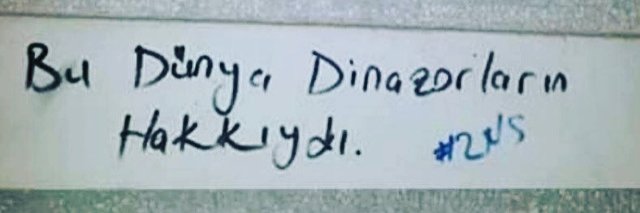 Bu Dünya Dinazorların
Hakkıydı. #2NS